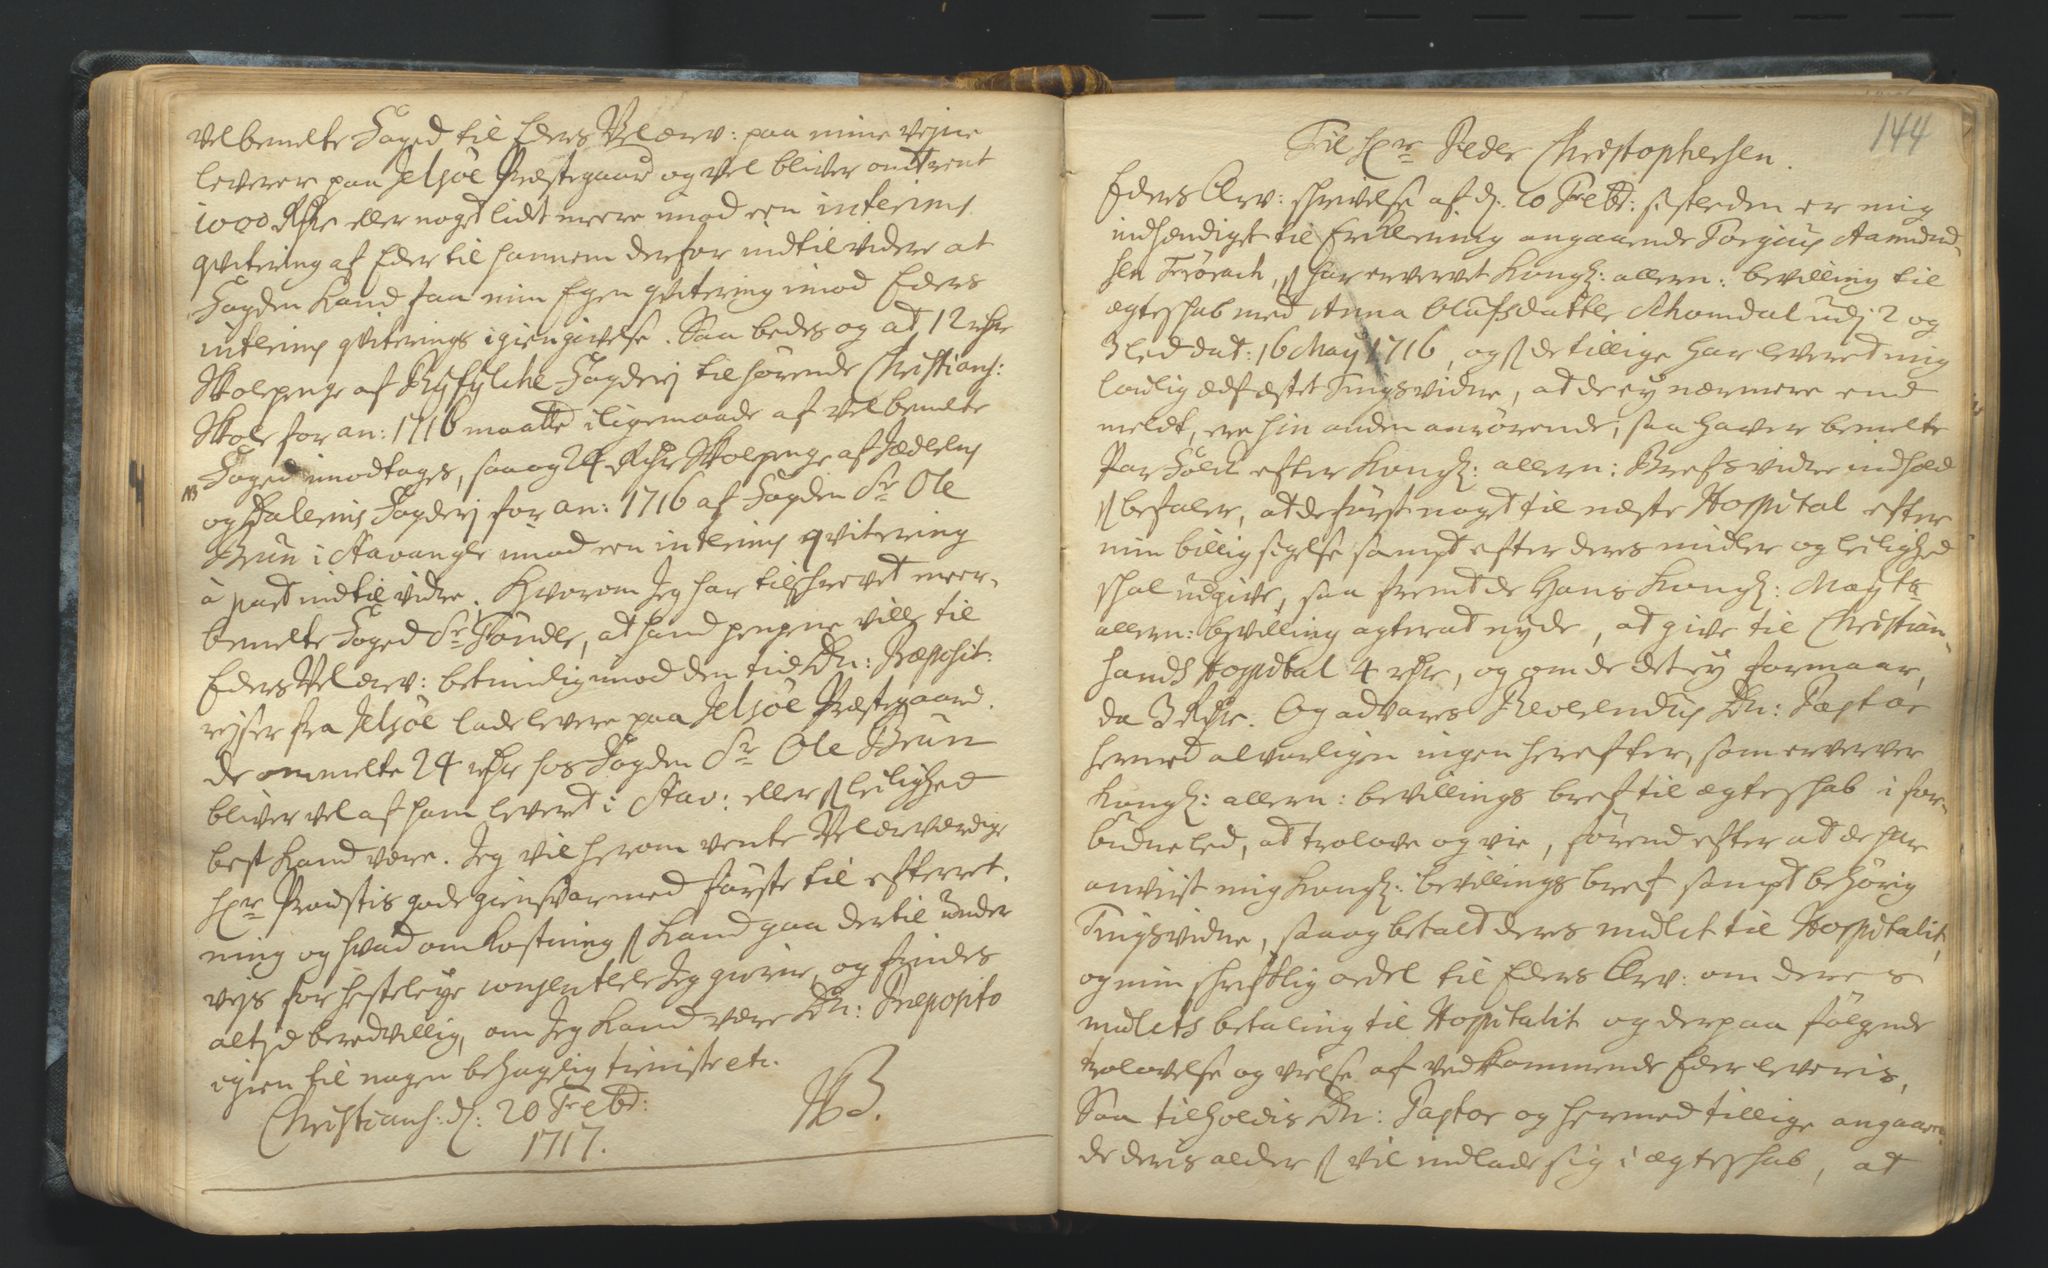 velbemelte Foged til Eders Vel ærv: paa mine vejne
leverer paa Jelsøe Præstegaard og vel bliver omtrent
1000 Rdr eller noget lidt meere imod een interims
qvitering af Eder til hannem derfor indtil videre at
Fogden kand faa min Egen qvitering imod Eders
interims qviterings igiengivelse. Saa bedes og at 12 rdr
Skolepenge af Ryfylche Fogderj tilhørende Christians:
Skole for an: 1716 maatte iligemaade af velbemelte
Foged imodtages, saa og 24 Rdr Skolepenge af Jæderens
NB og Dalerns Fogderj for an: 1716 af Fogden Sr Ole
Brun i Stavanger imod een interims qvitering
à part indtil videre. Hvorom Jeg har tilskrevet meer-
bemelte Foged Sr, at hand pengene ville til
Eders Vel ærv: betimelig imod den tid Dn: Præposit:
rejser fra Jelsøe lade levere paa Jelsøe Præstegaard.
De ommelte 24 rdr hos Fogden Sr Ole Brun
bliver vel af ham leveret i Stav: eller leilighed
best kand være. Jeg vil herom vente Velærværdige
Hr Proustis gode giensvar med første til efterret-
ning og hvad omkostning kand gaa dertil under
vejs for hesteleye consentere Jeg gierne, og findes
altjd beredvillig, om Jeg kand være Dn: Præposito
igien til nogen behagelig tieniste etc.
Christians: d: 20 Febr:
1717.
144
Til Hr Peder Christophersen.
Eders Ærv: skrivelse af d. 10 Febr: sistleden er mig
indhændiget til Erklæring angaaende Torgius Aamund-
sen, har ervervet Kongl: allern: bevilling til
ægteskab med Anna Olufsdatter Mhomdal udj 2 og
3 led dat: 16 May 1716, og de tillige har leveret mig
lovlig ædfæstet Tingsvidne, at de ej nærmere end
meldt, ere hin anden anrørende, saa haver bemelte
Par Folk efter Kongl: allern: Brefs videre indhold
befaler, at de først noget til næste Hospital efter
min billig sigelse sampt efter deres midler og leilighed
skal udgive, saa fremt de Hans Kongl: Mayts
allern: bevilling agter at nyde, at give til Christian-
sands Hospital 4 rdr, og om de det ej formaar,
da 3 Rdr. Og advares Reverendus Dn: Pastor
hermed alvorligen ingen herefter, som erverver
Kongl: allern: bevillings bref til ægteskab i for-
budne led, at trolove og vie, førend efter at de har
anviist mig Kongl: bevillings bref sampt behørig
Tingsvidne, saa og betalt deres mulct til Hospitalit,
og min skriftlig ordel til Eders Ærv: om deres
mulcts betaling til Hospitalit og derpaa følgende
trolovelse og vielse af vedkommende Eder leveris,
Saa tilholdis Dn: Pastor og hermed tillige angaaen-
de deris alder vil indlade sig i ægteskab, at